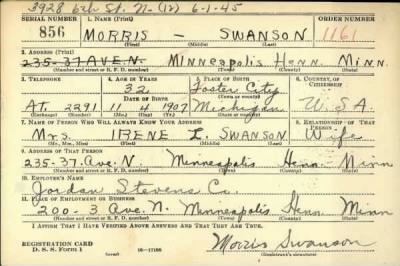 3928 6th St. N. (12) 6-1-45
SERIAL NUMBER 1. NAME (Print) ORDER NUMBER
856 MORRIS — SWANSON 1161
(First) (Middle) (Last)
2. ADDRESS (Print)
235-37 AVE N. MINNEAPOLIS HENN. MINN.
(Number and street or R. F. D. number) (Town) (County) (State)
3. TELEPHONE 4. AGE IN YEARS 5. PLACE OF BIRTH 6. COUNTRY OF CITIZENSHIP
32 Foster City
DATE OF BIRTH
AT. 2291 11 4 1907 Michigan U.S.A.
(Exchange) (Number) (Mo.) (Day) (Yr.) (State or country)
7. NAME OF PERSON WHO WILL ALWAYS KNOW YOUR ADDRESS 8. RELATIONSHIP OF THAT PERSON
Mrs. IRENE I. SWANSON Wife
(Mr., Mrs., Miss) (First) (Middle) (Last)
9. ADDRESS OF THAT PERSON
235-37 Ave. N. Minneapolis Henn. Minn
(Number and street or R. F. D. number) (Town) (County) (State)
10. EMPLOYER'S NAME
Jordan Stevens Co.
11. PLACE OF EMPLOYMENT OR BUSINESS
200-3 Ave. N. Minneapolis Henn. Minn
(Number and street or R. F. D. number) (Town) (County) (State)
I AFFIRM THAT I HAVE VERIFIED ABOVE ANSWERS AND THAT THEY ARE TRUE.
REGISTRATION CARD
D. S. S. FORM 1 16-17105 Morris Swanson
(Registrant's signature)